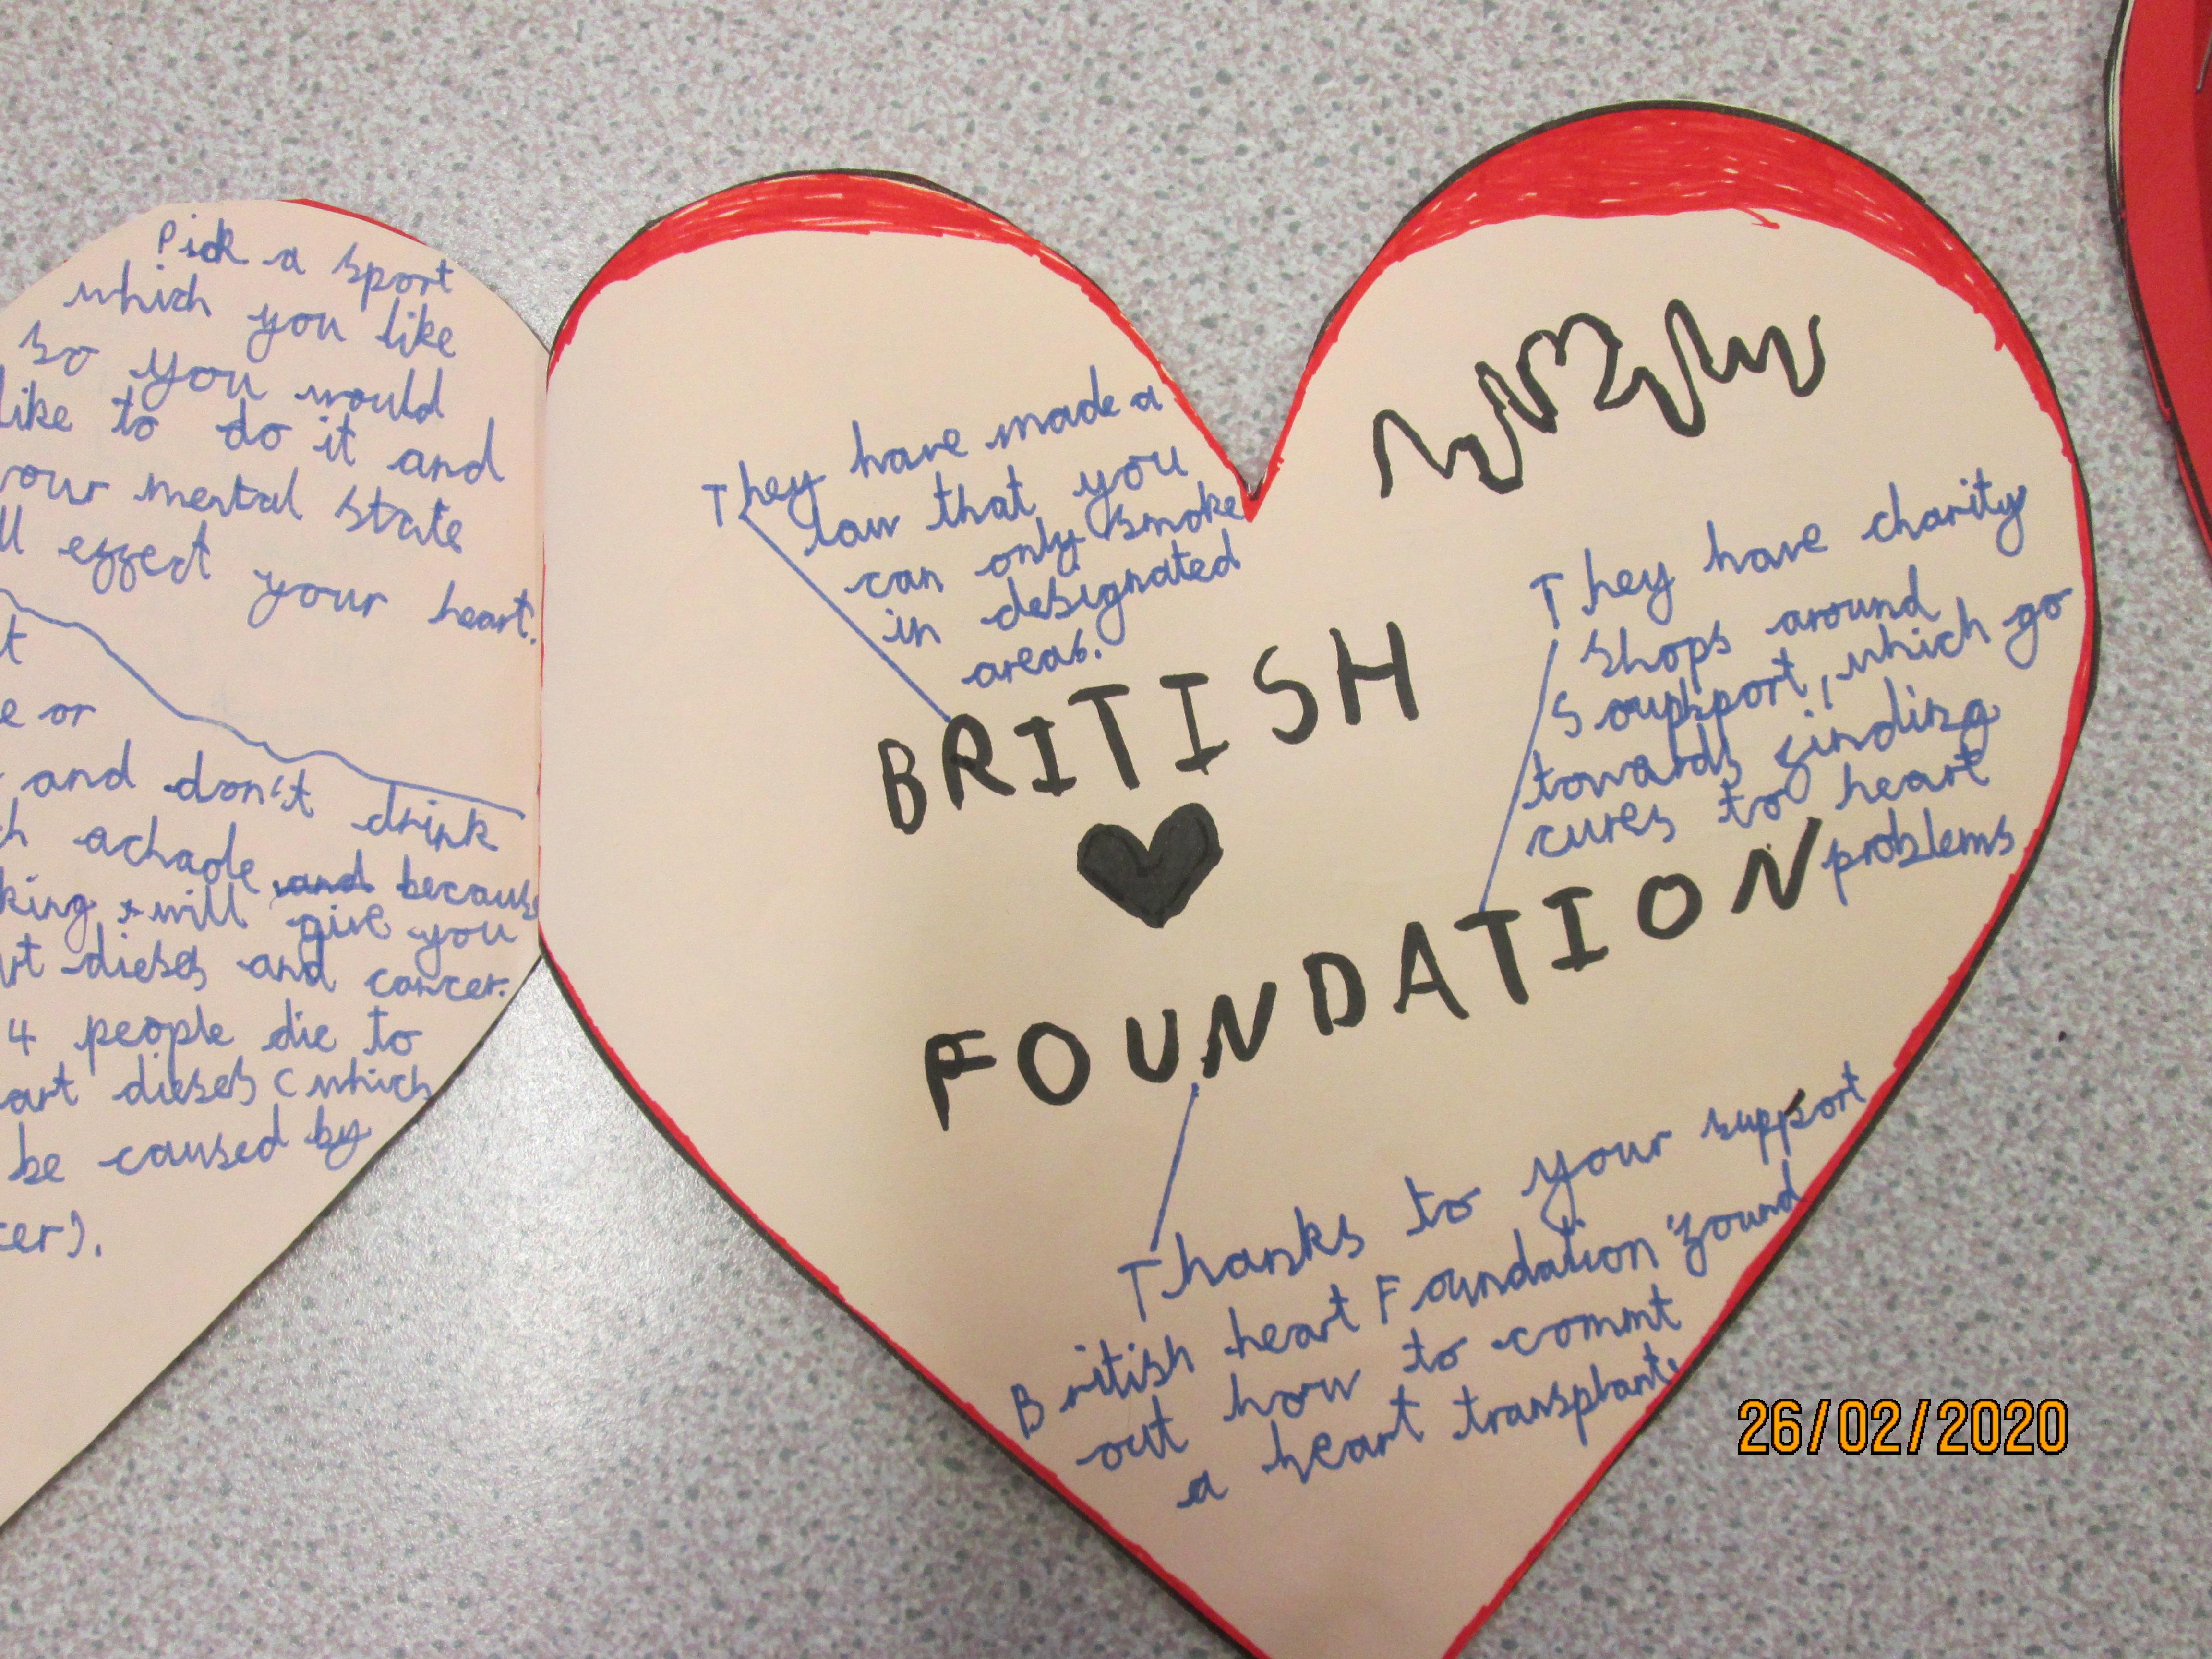 Pick a sport
which you like
so you would
like to do it and
your mental state
effect your heart.
e or
and don't drink
achaole and because
king will give you
dieses and cancer.
4 people die to
art dieses (which
be caused by
cer).
They have made a
law that you
can only smoke
in designated
areas.
BRITISH
FOUNDATION
They have charity
shops around
Soupport, which go
towards finding
cures to heart
problems
Thanks to your support
British heart Foundation found
out how to commt
a heart transplant.
26/02/2020